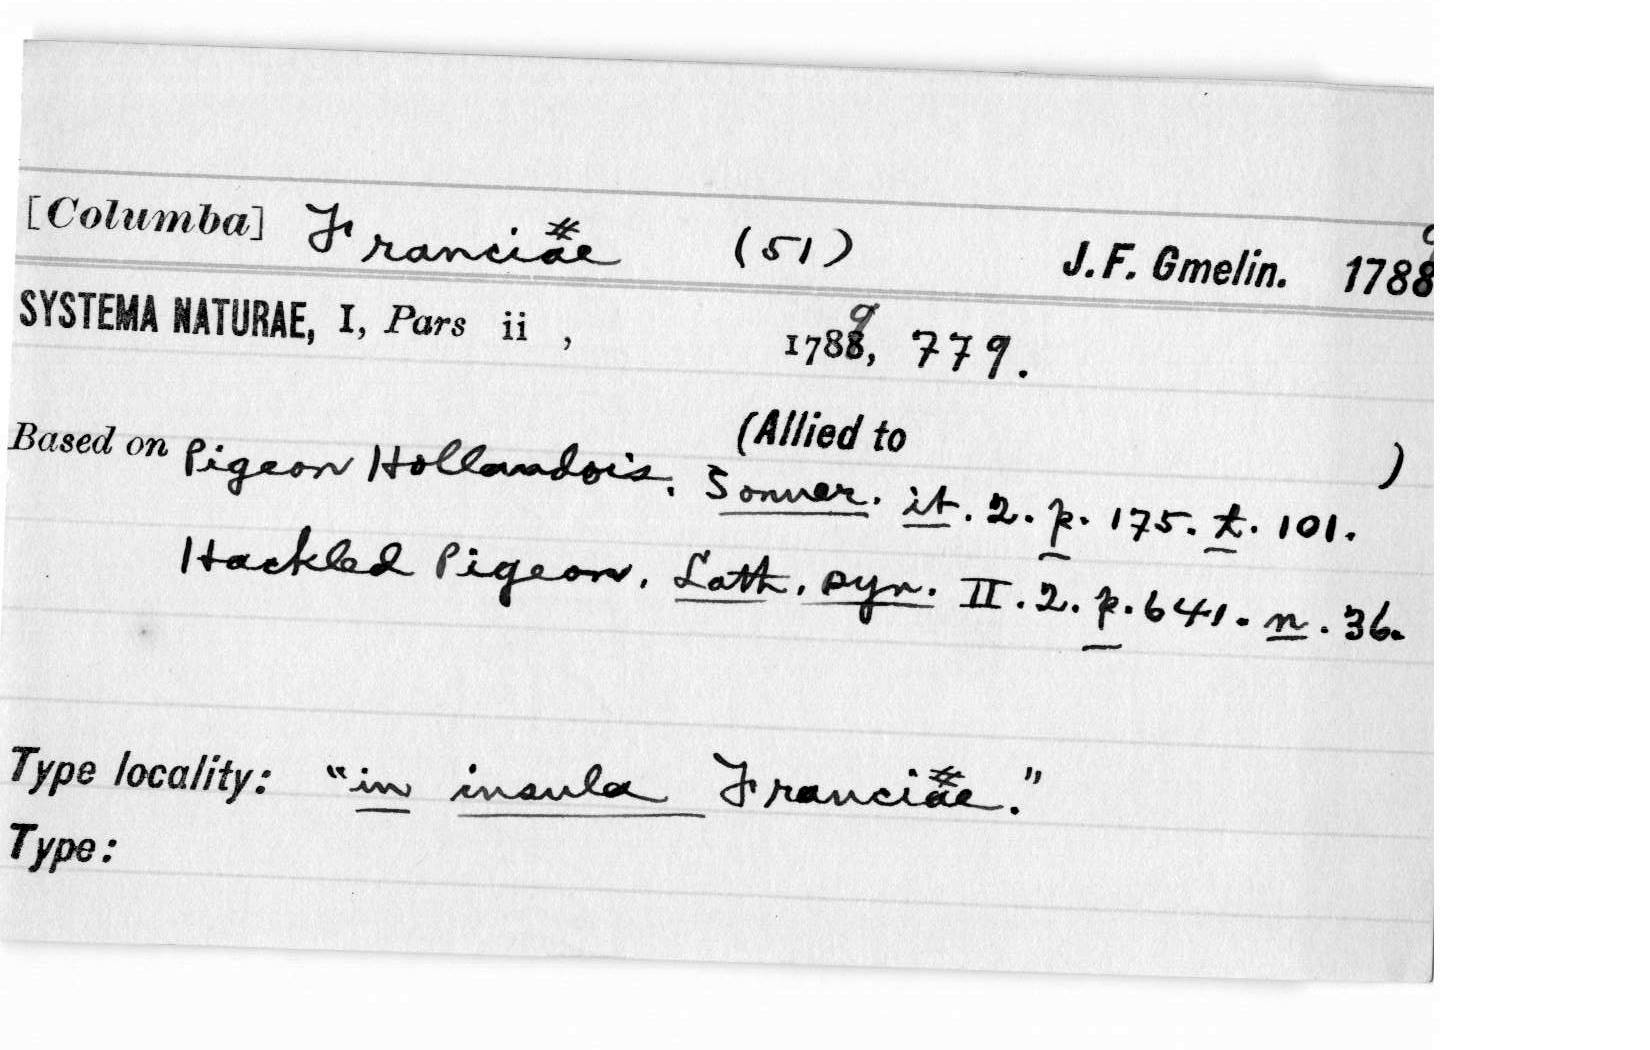 [Columba] Franciae (51) J. F. Gmelin. 1788
SYSTEMA NATURAE, I, Pars ii , 1789, 779.
(Allied to )
Based on Pigeon Hollandois. Sonner. it. 2. p. 175. t. 101.
Hackled Pigeon. Lath. syn. II. 2. p. 641. n. 36.
Type locality: "in insula Franciae."
Type: